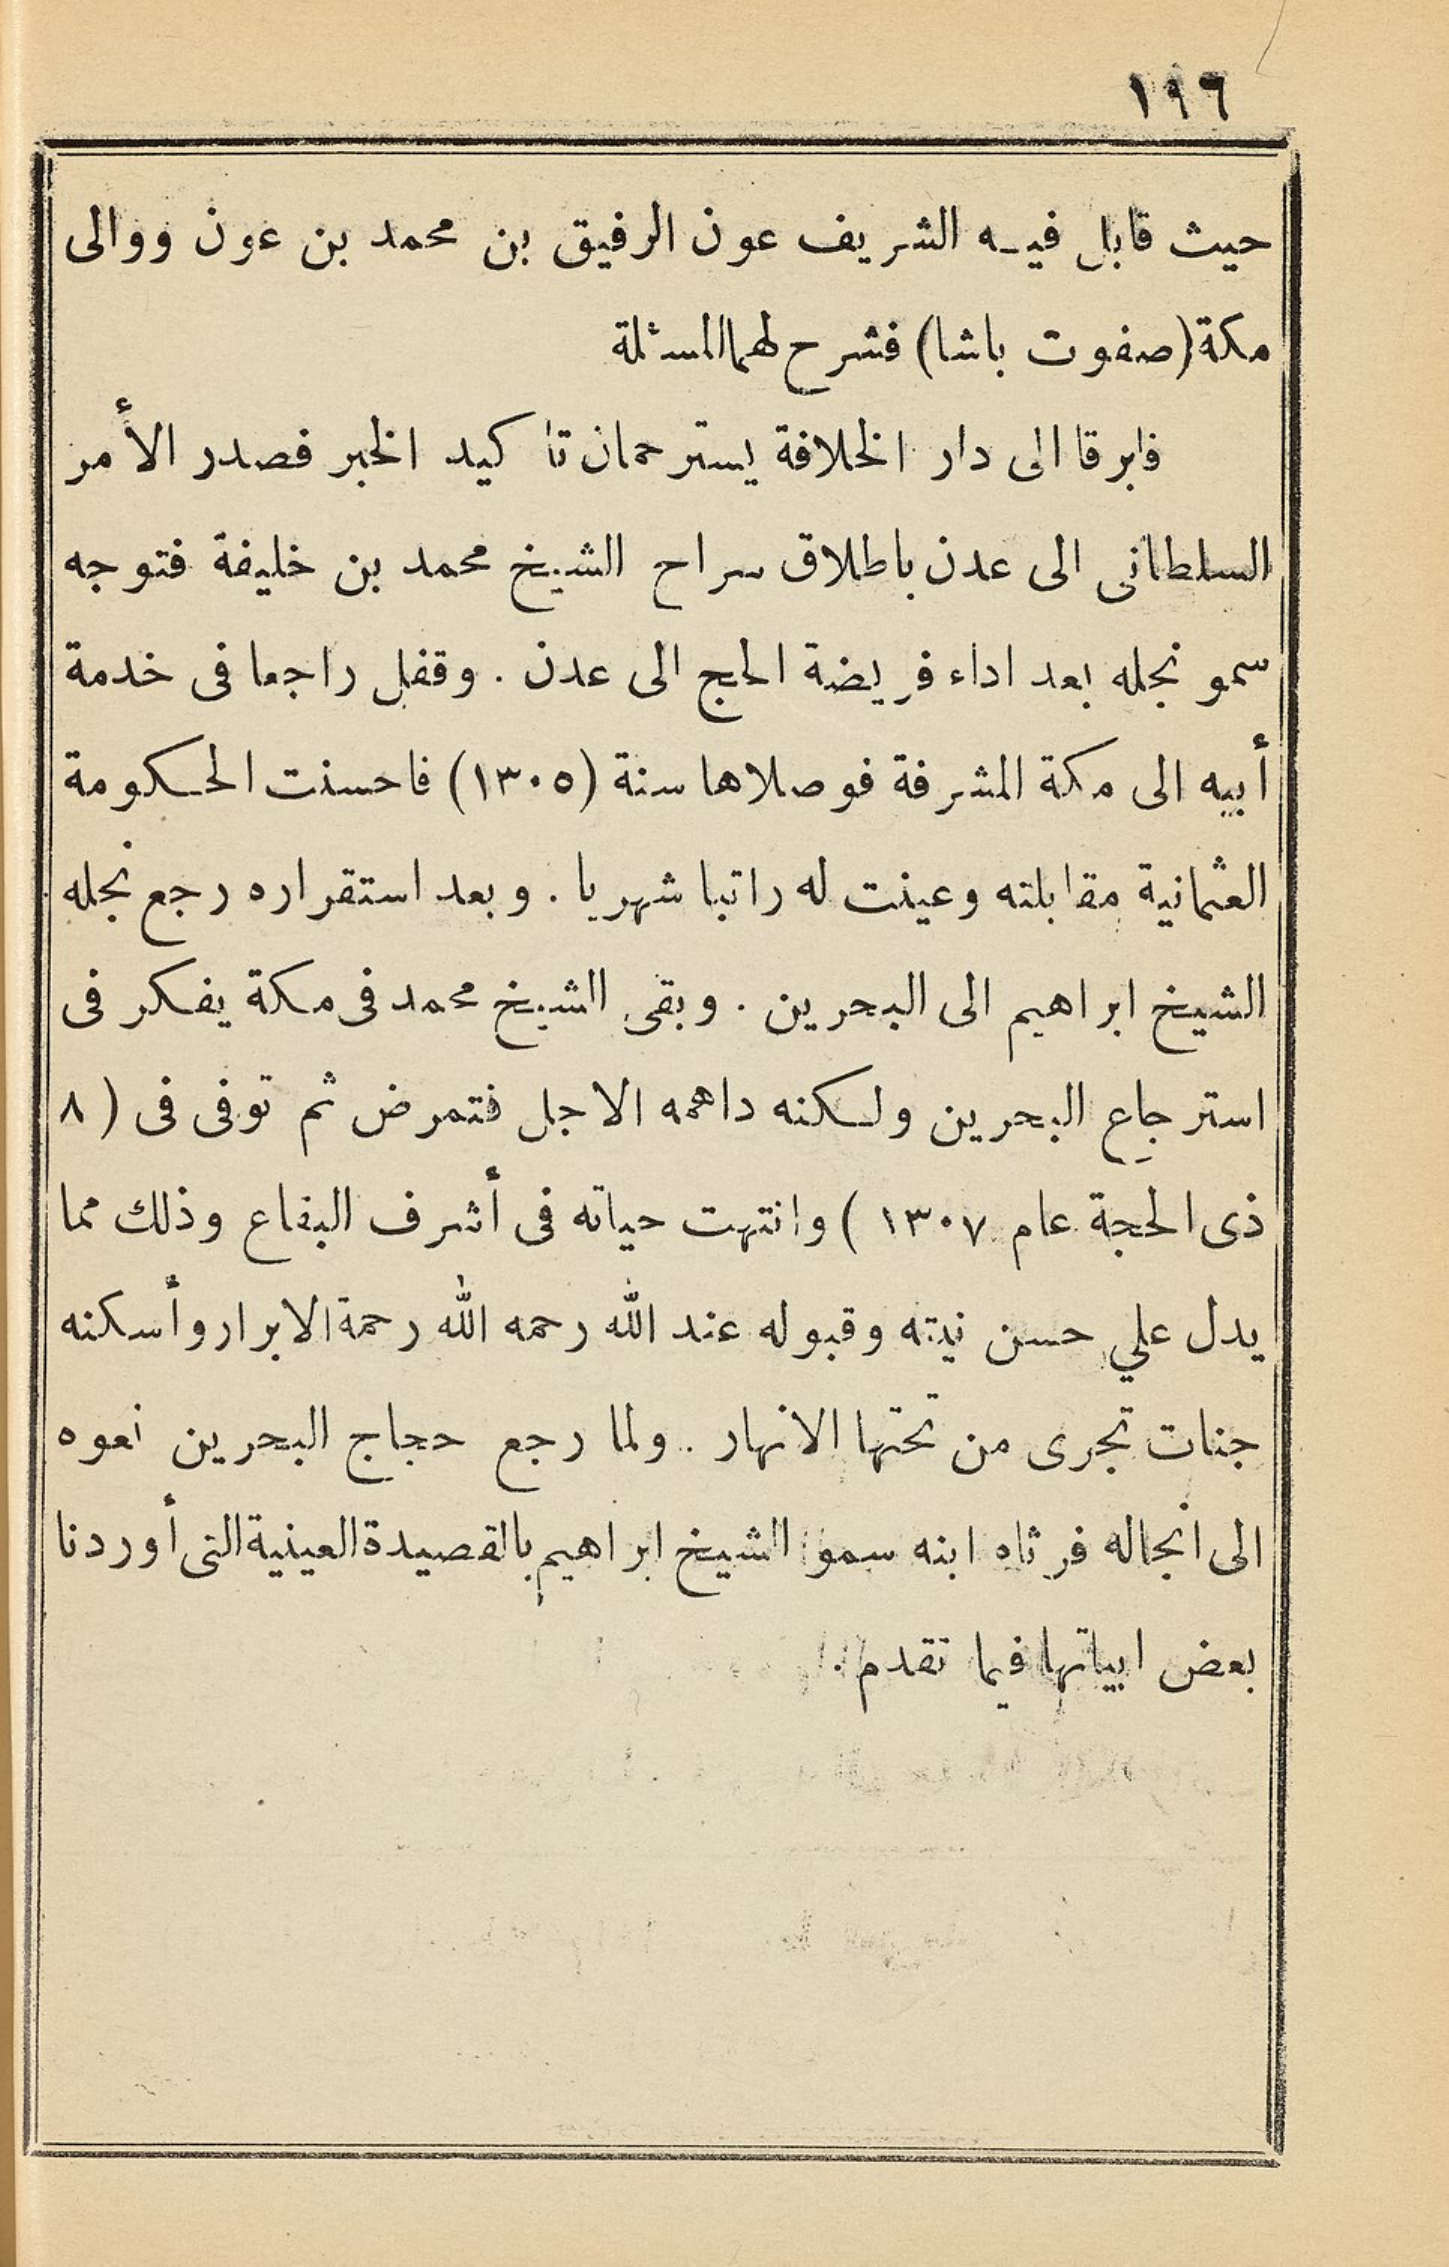 ١٩٦
حيث قابل فيه الشريف عون الرفيق بن محمد بن عون ووالى
مكة (صفوت باشا) فشرح لهما المسئلة
فابرقا الى دار الخلافة يسترحمان تا كيد الخبر فصدر الأمر
السلطانى الى عدن باطلاق سراح الشيخ محمد بن خليفة فتوجه
سمو نجله بعد اداء فريضة الحج الى عدن . وقفل راجعا فى خدمة
أبيه الى مكة المشرفة فوصلاها سنة (١٣٠٥) فاحسنت الحكومة
العثمانية مقابلته وعينت له راتبا شهريا . وبعد استقراره رجع نجله
الشيخ ابراهيم الى البحرين . وبقى الشيخ محمد فى مكة يفكر فى
استرجاع البحرين ولكنه داهمه الاجل فتمرض ثم توفى فى (٨
ذى الحجة عام ١٣٠٧) وانتهت حياته فى أشرف البقاع وذلك مما
يدل علي حسن نيته وقبوله عند الله رحمه الله رحمة الابرار وأسكنه
جنات تجرى من تحتها الانهار . ولما رجع حجاج البحرين نعوه
الى انجاله فرثاه ابنه سمو الشيخ ابراهيم بالقصيدة العينية التى أوردنا
بعض ابياتها فيما تقدم .